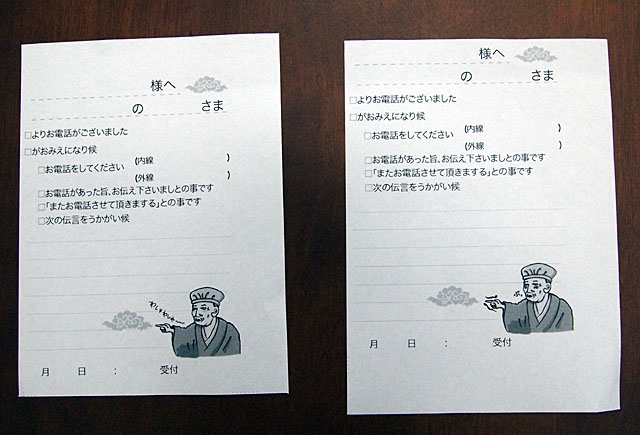 様へ
の さま
□よりお電話がございました
□がおみえになり候
□お電話をしてください (内線 )
(外線 )
□お電話があった旨、お伝え下さいましとの事です
□「またお電話させて頂きまする」との事です
□次の伝言をうかがい候
月 日 : 受付
様へ
の さま
□よりお電話がございました
□がおみえになり候
□お電話をしてください (内線 )
(外線 )
□お電話があった旨、お伝え下さいましとの事です
□「またお電話させて頂きまする」との事です
□次の伝言をうかがい候
月 日 : 受付